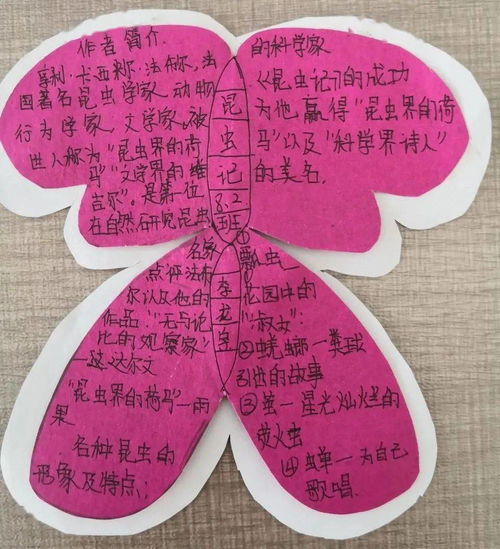 作者简介.
享利·卡西米尔·法布尔,法
国著名昆虫学家,动物
行为学家,文学家,被
世人称为"昆虫界的荷
马""文学界的维
吉尔"。是第一位
在自然研究昆虫
的科学家
《昆虫记》的成功
为他赢得"昆虫界的荷
马"以及"科学界诗人"
的美名.
昆
虫
记
8.2
班
李
龙
名家
点评法布
尔以及他的
作品:"无与伦
比的观察家"
—达尔文
"昆虫界的荷马"—雨
果
各种昆虫的
形象及特点;
①瓢虫
花园中的
"淑女"
②蜣螂—粪球
引出的故事
③萤—星光灿烂的
萤火虫
④蝉—为自己
歌唱.